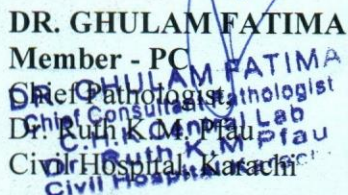 DR. GHULAM FATIMA
Member - PC
Chief Pathologist,
Dr. Ruth K.M. Pfau
Civil Hospital, Karachi
DR. GHULAM FATIMA
Chief Consultant Pathologist
Central Lab
Dr. Ruth K.M Pfau
Civil Hospital Karachi